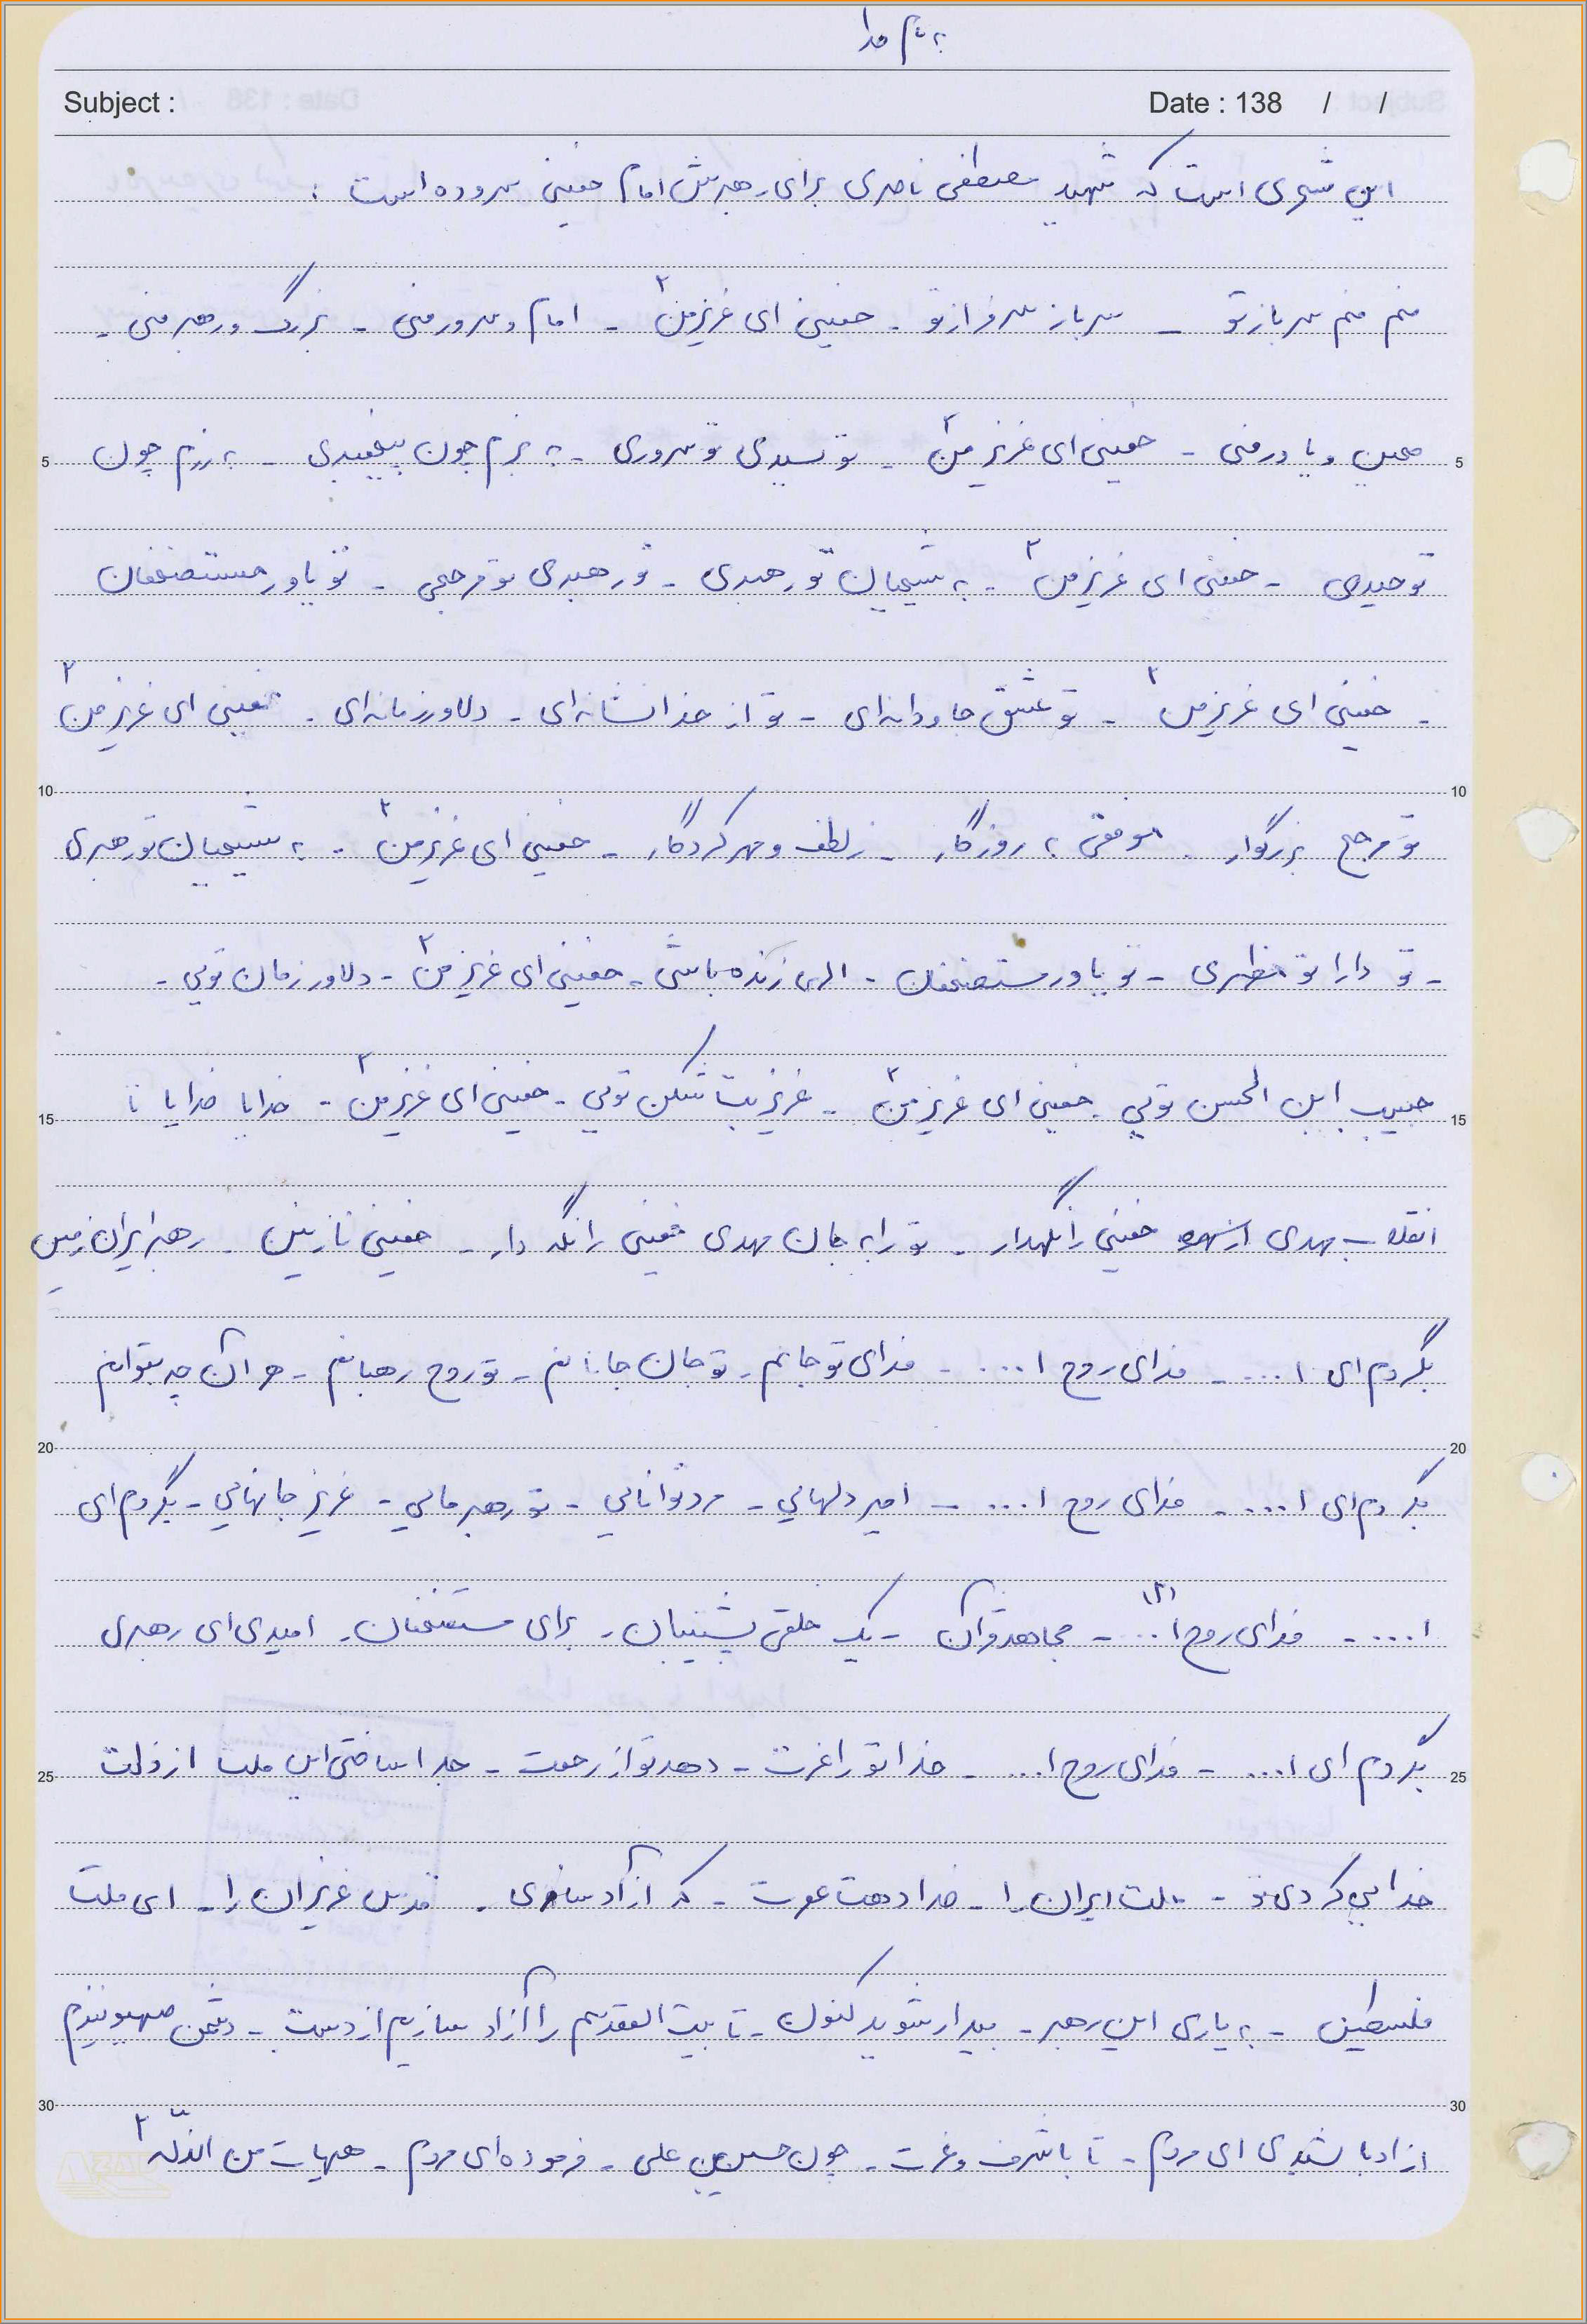 به نام خدا
Subject :
Date : 138 / /
این شعری است که شهید مصطفی ناصری برای رهبرش امام خمینی سروده است :
منم منم سرباز تو - سرباز سرفراز تو - خمینی ای عزیز من ۲ - امام و سرور منی - بزرگ و رهبر منی -
5 معین و یاور منی - خمینی ای عزیز من ۲ - تو سیدی تو سروری - به بزم چون پیغمبری - به رزم چون 5
توحیدی - خمینی ای عزیز من ۲ - به شیعیان تو رهبری - تو رهبری تو مرجعی - تو یاور مستضعفان
- خمینی ای عزیز من ۲ - تو عشق جاودانه‌ای - تو از خدا نشانه‌ای - دلاور زمانه‌ای - خمینی ای عزیز من ۲
10 10
تو مرجع بزرگوار - موفقی به روزگار - ز لطف و مهر کردگار - خمینی ای عزیز من ۲ - به شیعیان تو رهبری
- تو دارا تو مظهری - تو یاور مستضعفان - الهی زنده باشی - خمینی ای عزیز من ۲ - دلاور زمان تویی -
15 حبیب ابن الحسن تویی - خمینی ای عزیز من ۲ - عزیز بت شکن تویی - خمینی ای عزیز من ۲ - خدایا خدایا تا 15
انقلاب مهدی خمینی را نگهدار - تو را به جان مهدی خمینی را نگه دار - خمینی نازنین - رهبر ایران زمین
بگردم ای ا.... - فدای روح ا.... - فدای تو جانم - تو جان جانانم - تو روح رهبانم - هر آن چه بتوانم
20 20
بگردم ای ا.... - فدای روح ا.... - امیر دلهایی - مرد توانایی - تو رهبر مایی - عزیز جانهایی - بگردم ای
ا.... - فدای روح ا... (۲) - مجاهد قرآن - یک خلقی پشتیبان - برای مستضعفان - امیدی ای رهبری
25 بگردم ای ا.... - فدای روح ا.... - خدا تو را عزت - دهد تو از رحمت - جدا ساختی این ملت از ذلت 25
خدایی کردی تو - ملت ایران را - خدا دهت عمرت - که آزاد سازی - قدس عزیزان را - ای ملت
فلسطین - به یاری این رهبر - بیدار شوید کنون - تا بیت المقدس را آزاد سازیم از دست - دشمن صهیونیزم
30 30
ازاد باشیدی ای مردم - تا با شرف و عزت - چون حسین بن علی - فرموده ای مردم - هیهات من الذلّه ۲